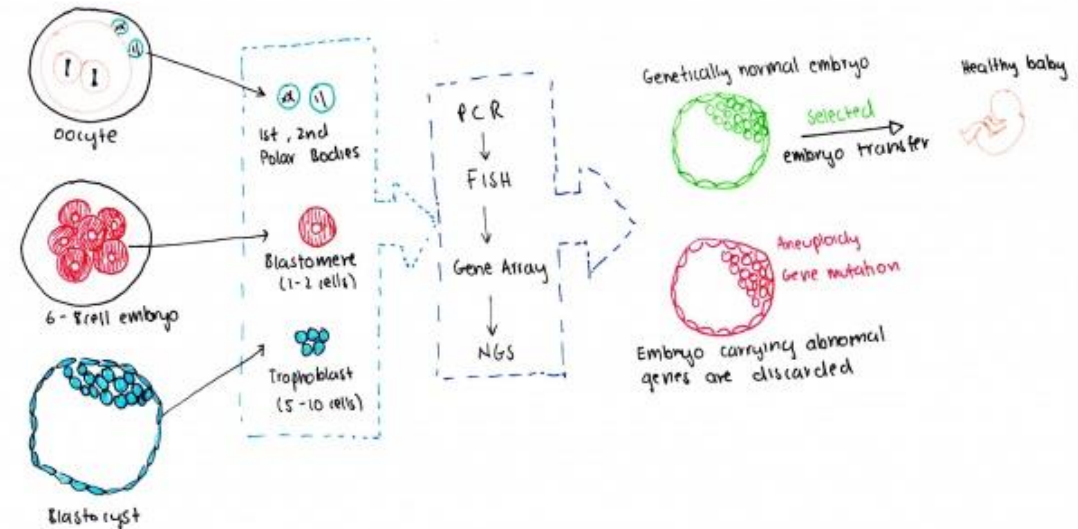 Oocyte
1st, 2nd
Polar Bodies
6 - 8cell embryo
Blastomere
(1-2 cells)
Blastocyst
Trophoblast
(5-10 cells)
PCR
FISH
Gene Array
NGS
Genetically normal embryo
selected
embryo transfer
Healthy baby
Aneuploidy
Gene mutation
Embryo carrying abnormal
genes are discarded